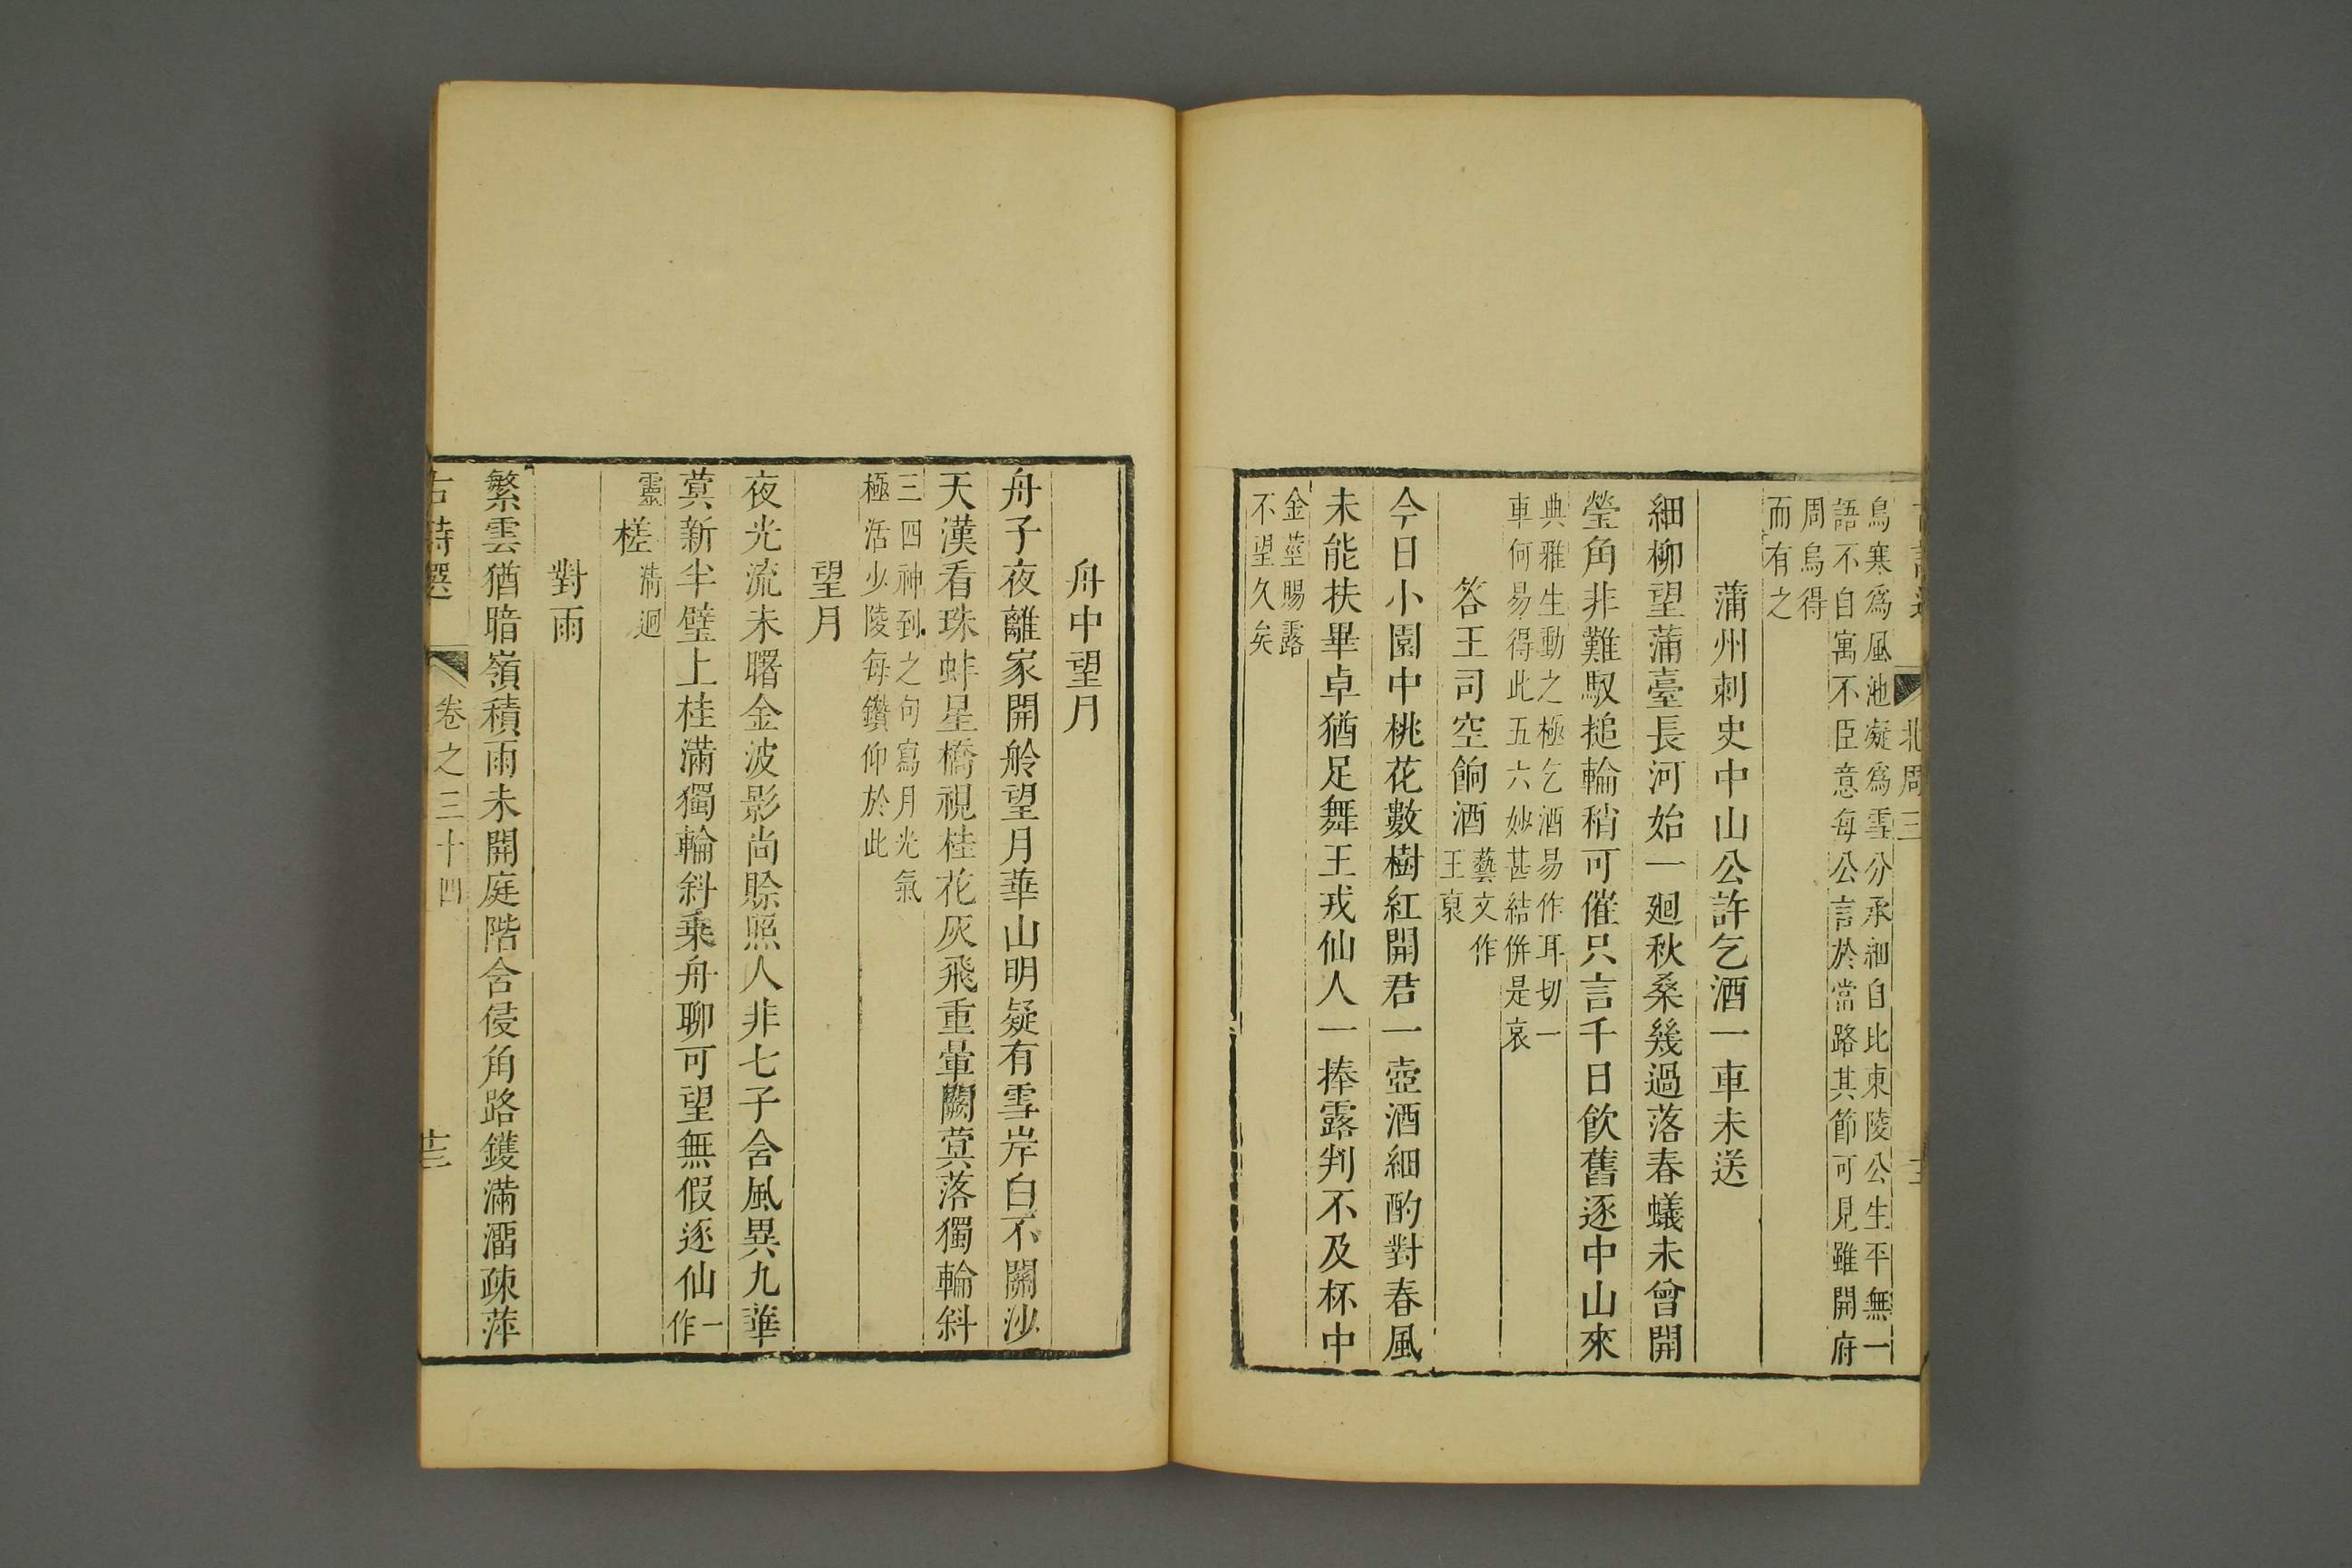 北周三
鳥寒爲風池凝爲雪分承細自比東陵公生平無一
語不自寓不臣意每公言於當路其節可見雖開府
周鳥得
而有之
蒲州刺史中山公許乞酒一車未送
細柳望蒲臺長河始一廻秋桑幾過落春蟻未曾開
瑩角非難馭搥輪稍可催只言千日飲舊逐中山來
典雅生動之極乞酒易作耳切一
車何易得此五六妙甚結併是哀
答王司空餉酒
藝文作
王裒
今日小園中桃花數樹紅開君一壺酒細酌對春風
未能扶畢卓猶足舞王戎仙人一捧露判不及杯中
金莖賜露
不望久矣
舟中望月
舟子夜離家開舲望月華山明疑有雪岸白不關沙
天漢看珠蚌星橋視桂花灰飛重暈闕蓂落獨輪斜
三四神到之句寫月光氣
極活少陵每鑽仰於此
望月
夜光流未曙金波影尚賒照人非七子含風異九華
蓂新半璧上桂滿獨輪斜乗舟聊可望無假逐仙
一
作
靈
槎
滿迥
對雨
繁雲猶暗嶺積雨未開庭階含侵角路鑊滿溜疎萍
古詩選 卷之三十四